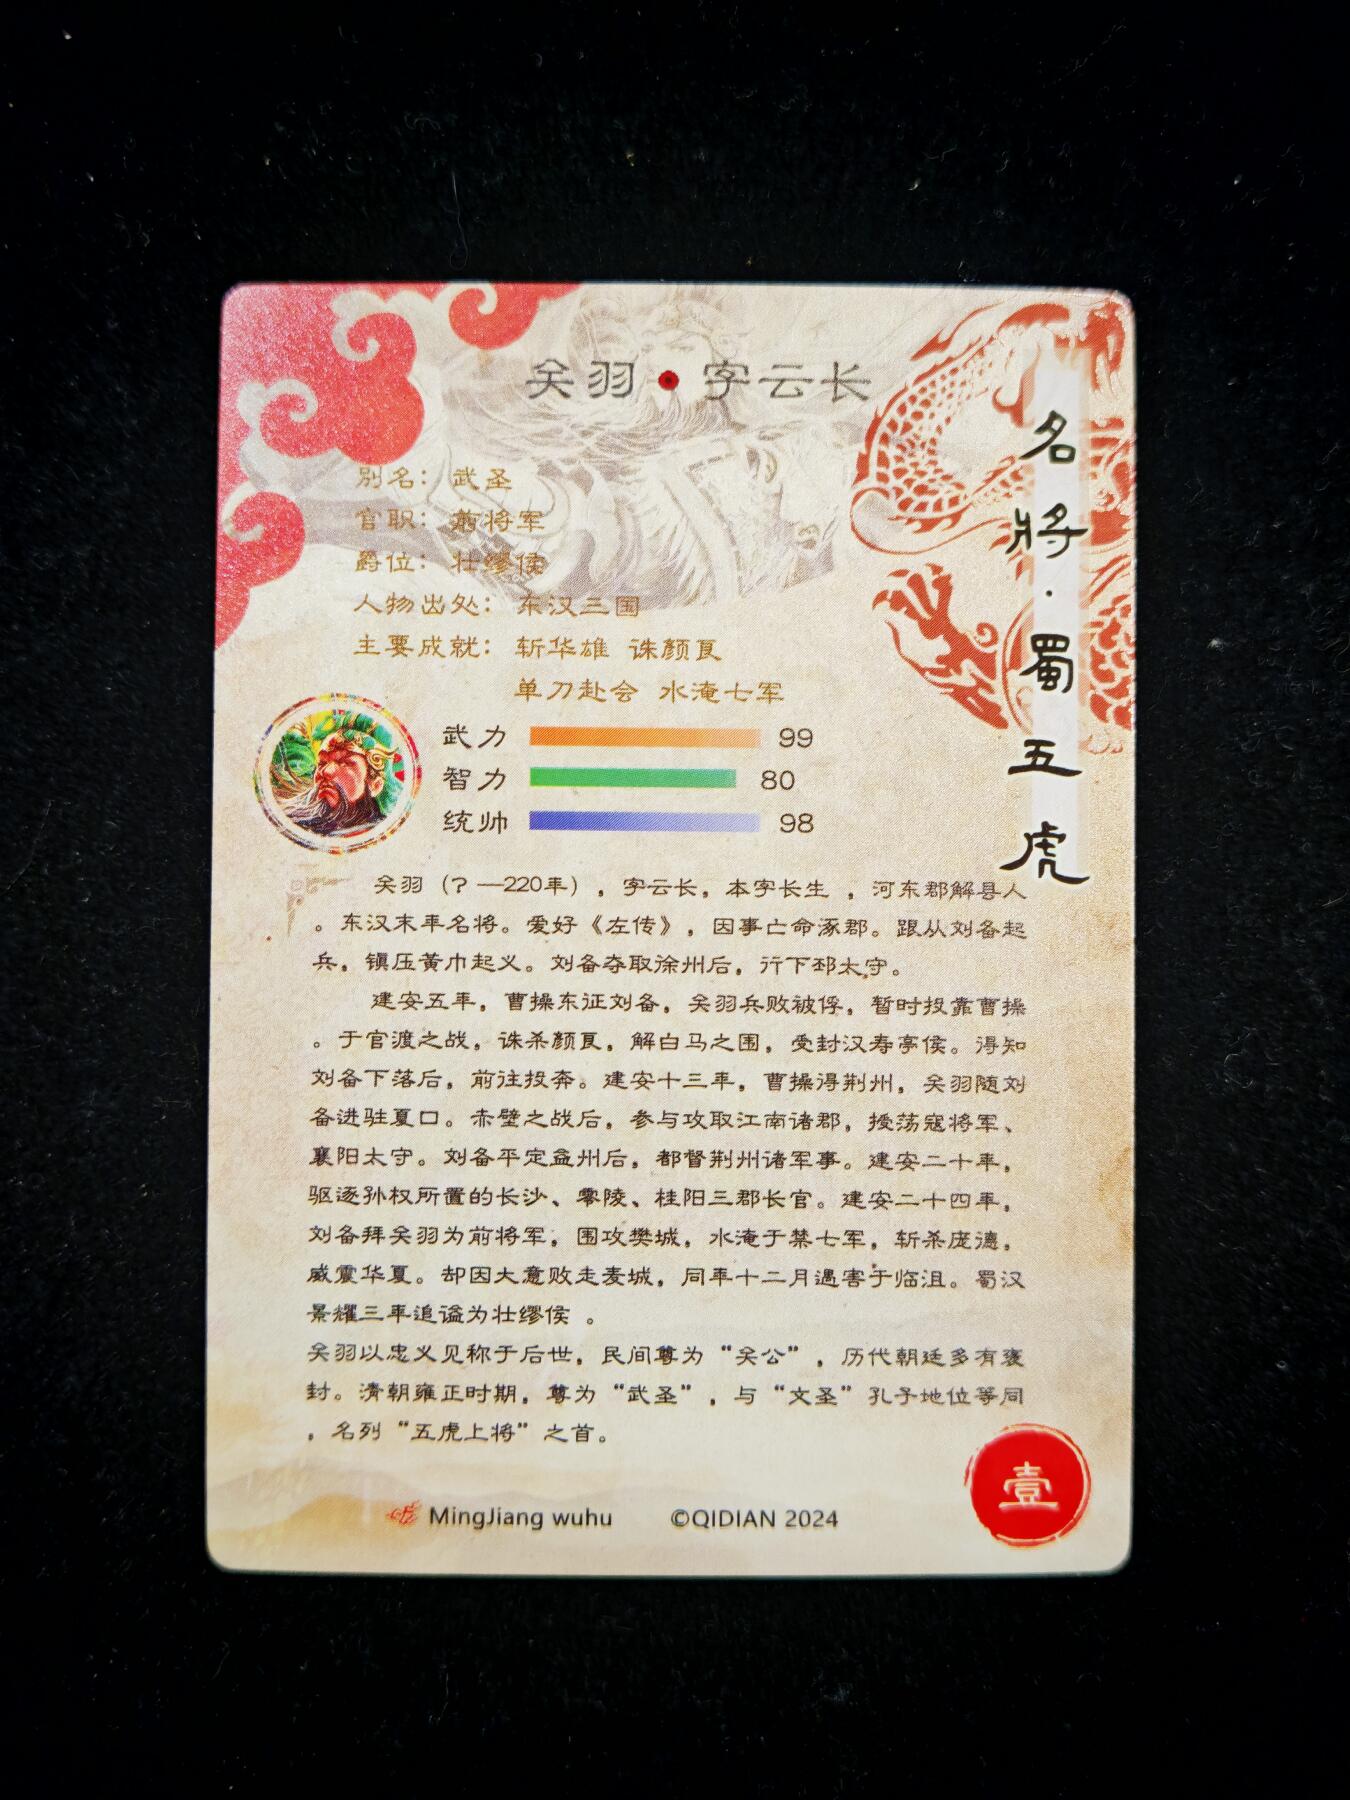 关羽·字云长
名将·蜀五虎
别名：武圣
官职：前将军
爵位：壮缪侯
人物出处：东汉三国
主要成就：斩华雄 诛颜良
单刀赴会 水淹七军
武力 99
智力 80
统帅 98
关羽（？—220年），字云长，本字长生 ，河东郡解县人
。东汉末年名将。爱好《左传》，因事亡命涿郡。跟从刘备起
兵，镇压黄巾起义。刘备夺取徐州后，行下邳太守。
建安五年，曹操东征刘备，关羽兵败被俘，暂时投靠曹操
。于官渡之战，诛杀颜良，解白马之围，受封汉寿亭侯。得知
刘备下落后，前往投奔。建安十三年，曹操得荆州，关羽随刘
备进驻夏口。赤壁之战后，参与攻取江南诸郡，授荡寇将军、
襄阳太守。刘备平定益州后，都督荆州诸军事。建安二十年，
驱逐孙权所置的长沙、零陵、桂阳三郡长官。建安二十四年，
刘备拜关羽为前将军，围攻樊城，水淹于禁七军，斩杀庞德，
威震华夏。却因大意败走麦城，同年十二月遇害于临沮。蜀汉
景耀三年追谥为壮缪侯 。
关羽以忠义见称于后世，民间尊为“关公”，历代朝廷多有褒
封。清朝雍正时期，尊为“武圣”，与“文圣”孔子地位等同
，名列“五虎上将”之首。
MingJiang wuhu ©QIDIAN 2024
壹